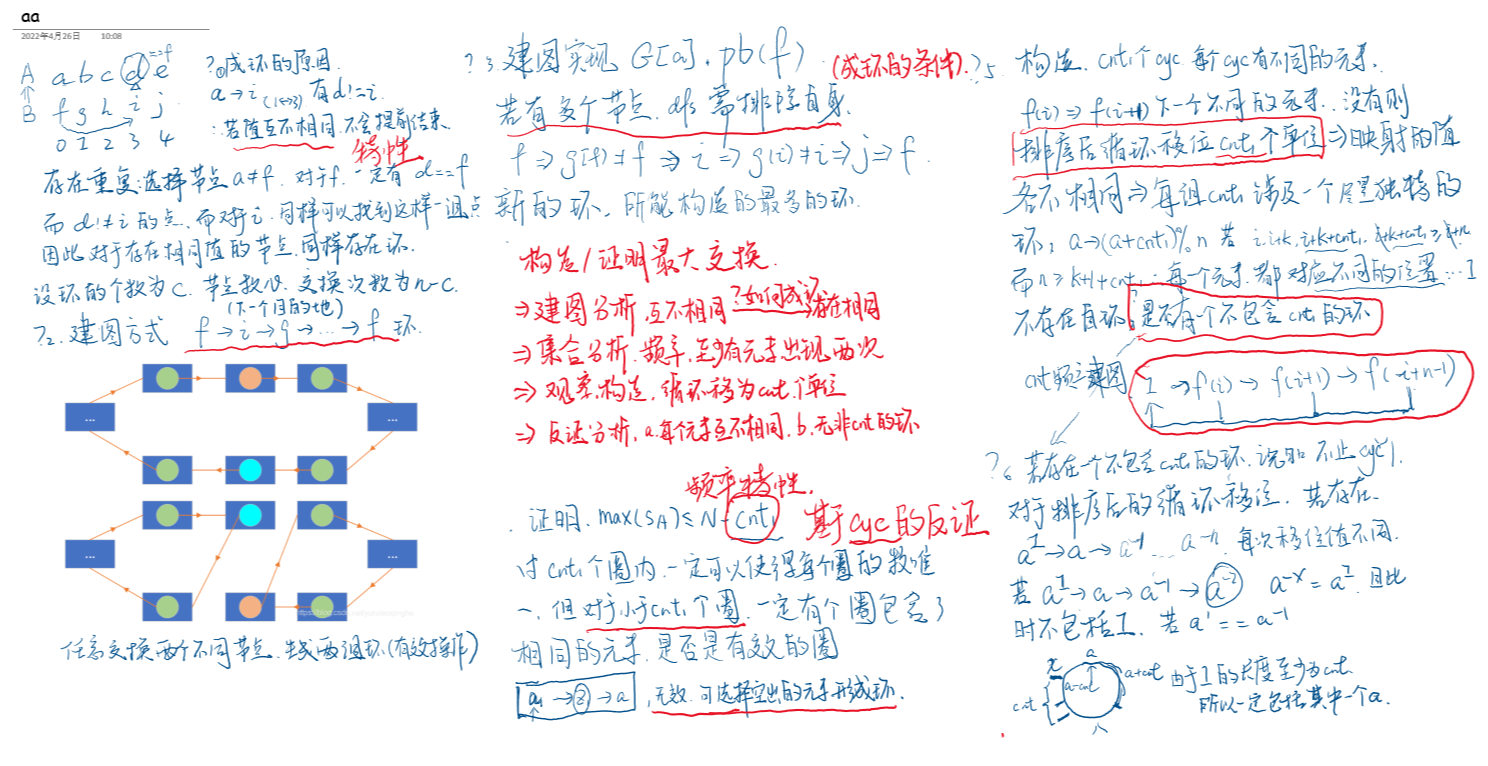 aa
2022年4月26日 10:08
A a b c d e ==f
↑
B f g h i j
0 1 2 3 4
?。成环的原因.
a→i (1↔3) 有d!=i.
:若值互不相同.不会提前结束.
特性
存在重复.选择节点a≠f. 对于f.一定有 d==f
而 d!≠i 的点.而对于i.同样可以找到这样一组点
因此对于存在相同值的节点.同样存在环.
设环的个数为C. 节点数N. 交换次数为n-c.
(下一个目的地)
?2. 建图方式 f→i→g→...→f 环.
...
...
...
...
任意交换两个不同节点.生成两组环(有效操作)
?3.建图实现 G[a].pb(f)
(成环的条件).
若有多个节点.dfs需排除自身.
f⇒g[f]≠f⇒i⇒g(i)≠i⇒j⇒f.
新的环.所能构造的最多的环.
构造/证明最大交换.
⇒建图分析.互不相同?如何成环存在相同
⇒集合分析.频率.至少有元素出现两次
⇒观察.构造.循环移为cnt个单位
⇒反证分析.a.每个元素互不相同.b.无非cnt的环
频率特性.
.证明.max(SA)≤N-cnt1
基于cyc的反证
对cnt1个圈内.一定可以使得每个圈的数唯
一.但对于小于cnt1个圈.一定有个圈包含了
相同的元素.是否是有效的圈
a1→②→a
,无效.可选择空出的元素形成环.
?5 构造. cnt1个cyc每个cyc有不同的元素.
f(i)⇒f(i+1)下一个不同的元素..没有则
排序后循环移位cnt1个单位⇒映射的值
各不相同⇒每组cnt1涉及一个尽量独特的
环: a→(a+cnt1)%n 若 i,i+k,i+k+cnt1.
而n≥k+1+cnt1 ∴每个元素都对应不同的位置...1
不存在自环;是否有一个不包含cnt1的环
cnt频率建图
1→f(i)→f(i+1)→f(i+n-1)
?6 若存在一个不包含cnt1的环.说明不止cyc1.
对于排序后的循环移位.若存在.
a¹→a→a⁻¹...a⁻ⁿ.每次移位值不同.
若a¹→a→a⁻¹→a⁻² a⁻ˣ=a². 因此
时不包括1. 若a'==a⁻¹
a
a-cnt
a+cnt
cnt
由于1的长度至少为cnt.
所以一定包括其中一个a.